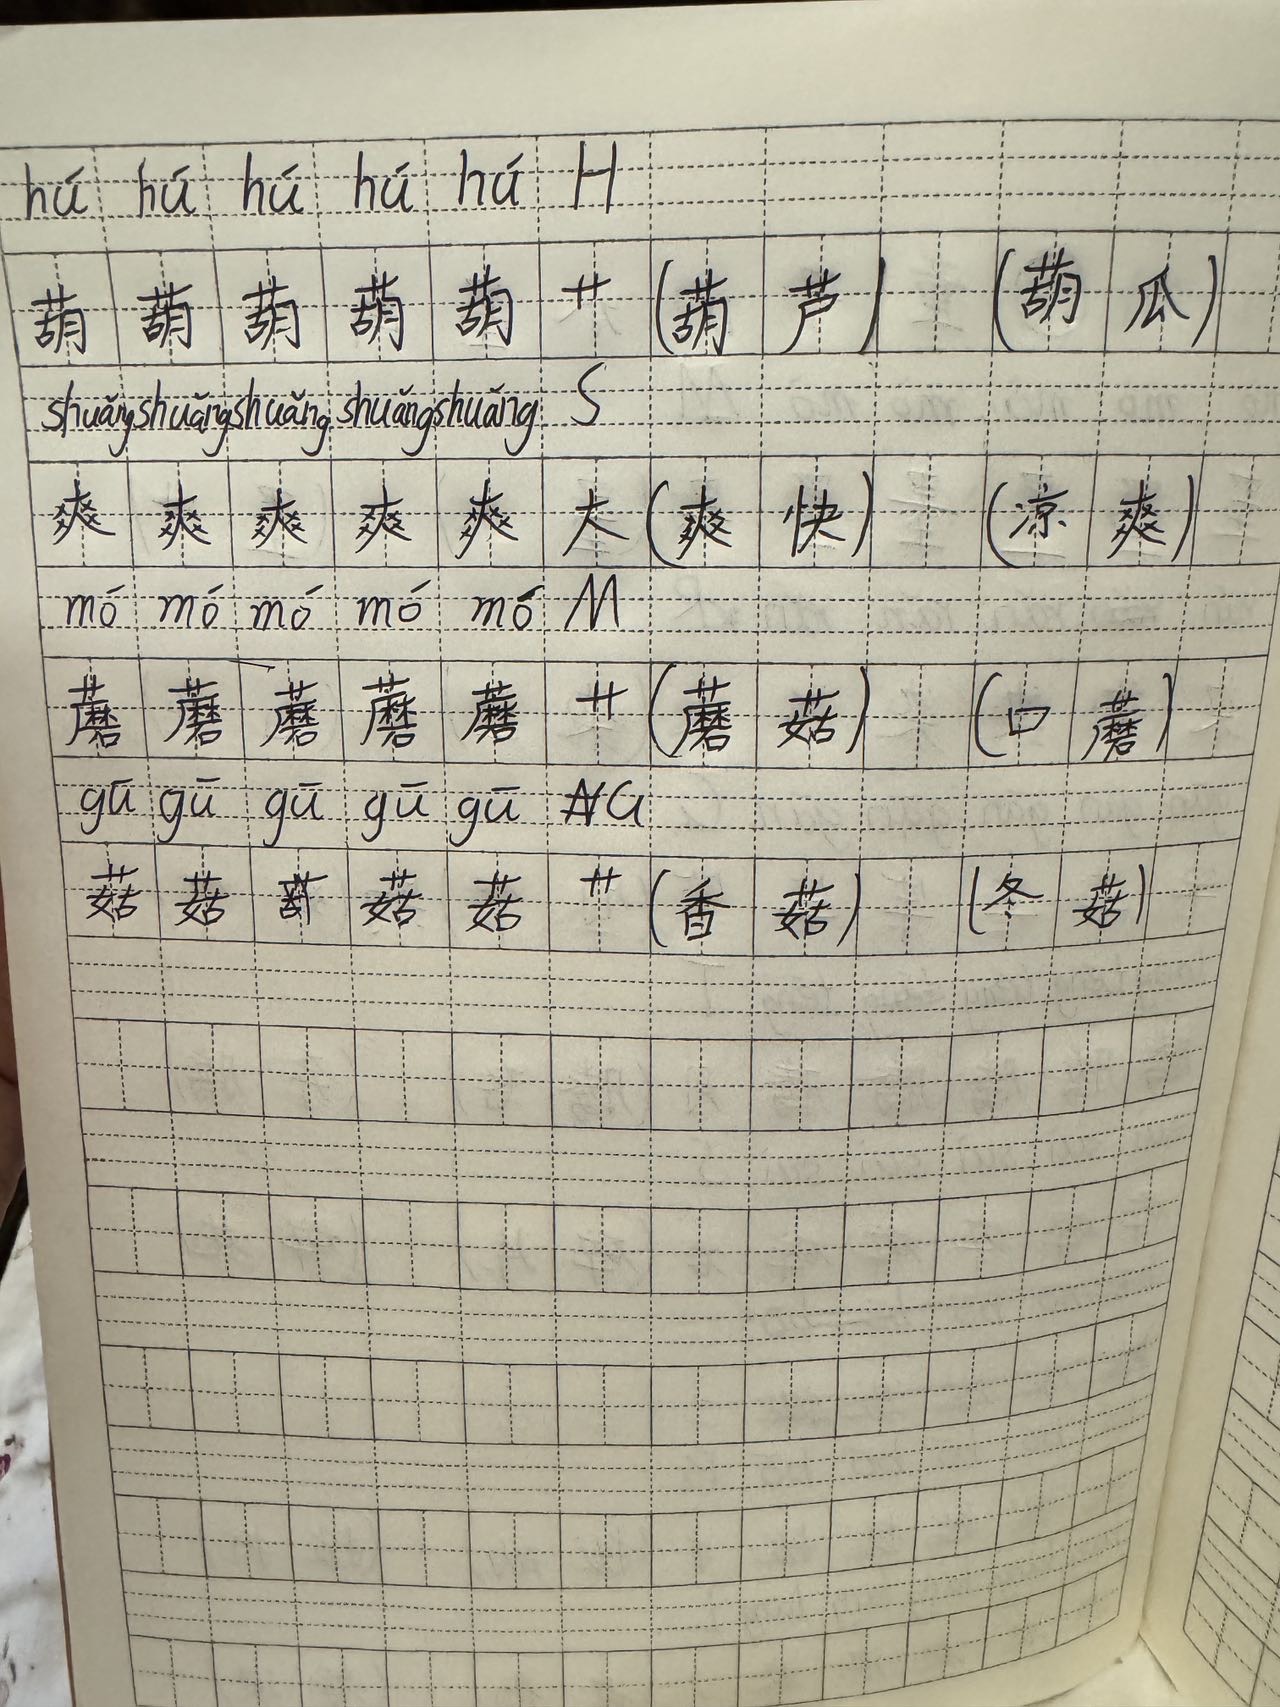 hú hú hú hú hú H
葫 葫 葫 葫 葫 艹 (葫 芦) (葫 瓜)
shuǎng shuǎng shuǎng shuǎng shuǎng S
爽 爽 爽 爽 爽 大 (爽 快) (凉 爽)
mó mó mó mó mó M
蘑 蘑 蘑 蘑 蘑 艹 (蘑 菇) (口 蘑)
gū gū gū gū gū G
菇 菇 菇 菇 艹 (香 菇) (冬 菇)